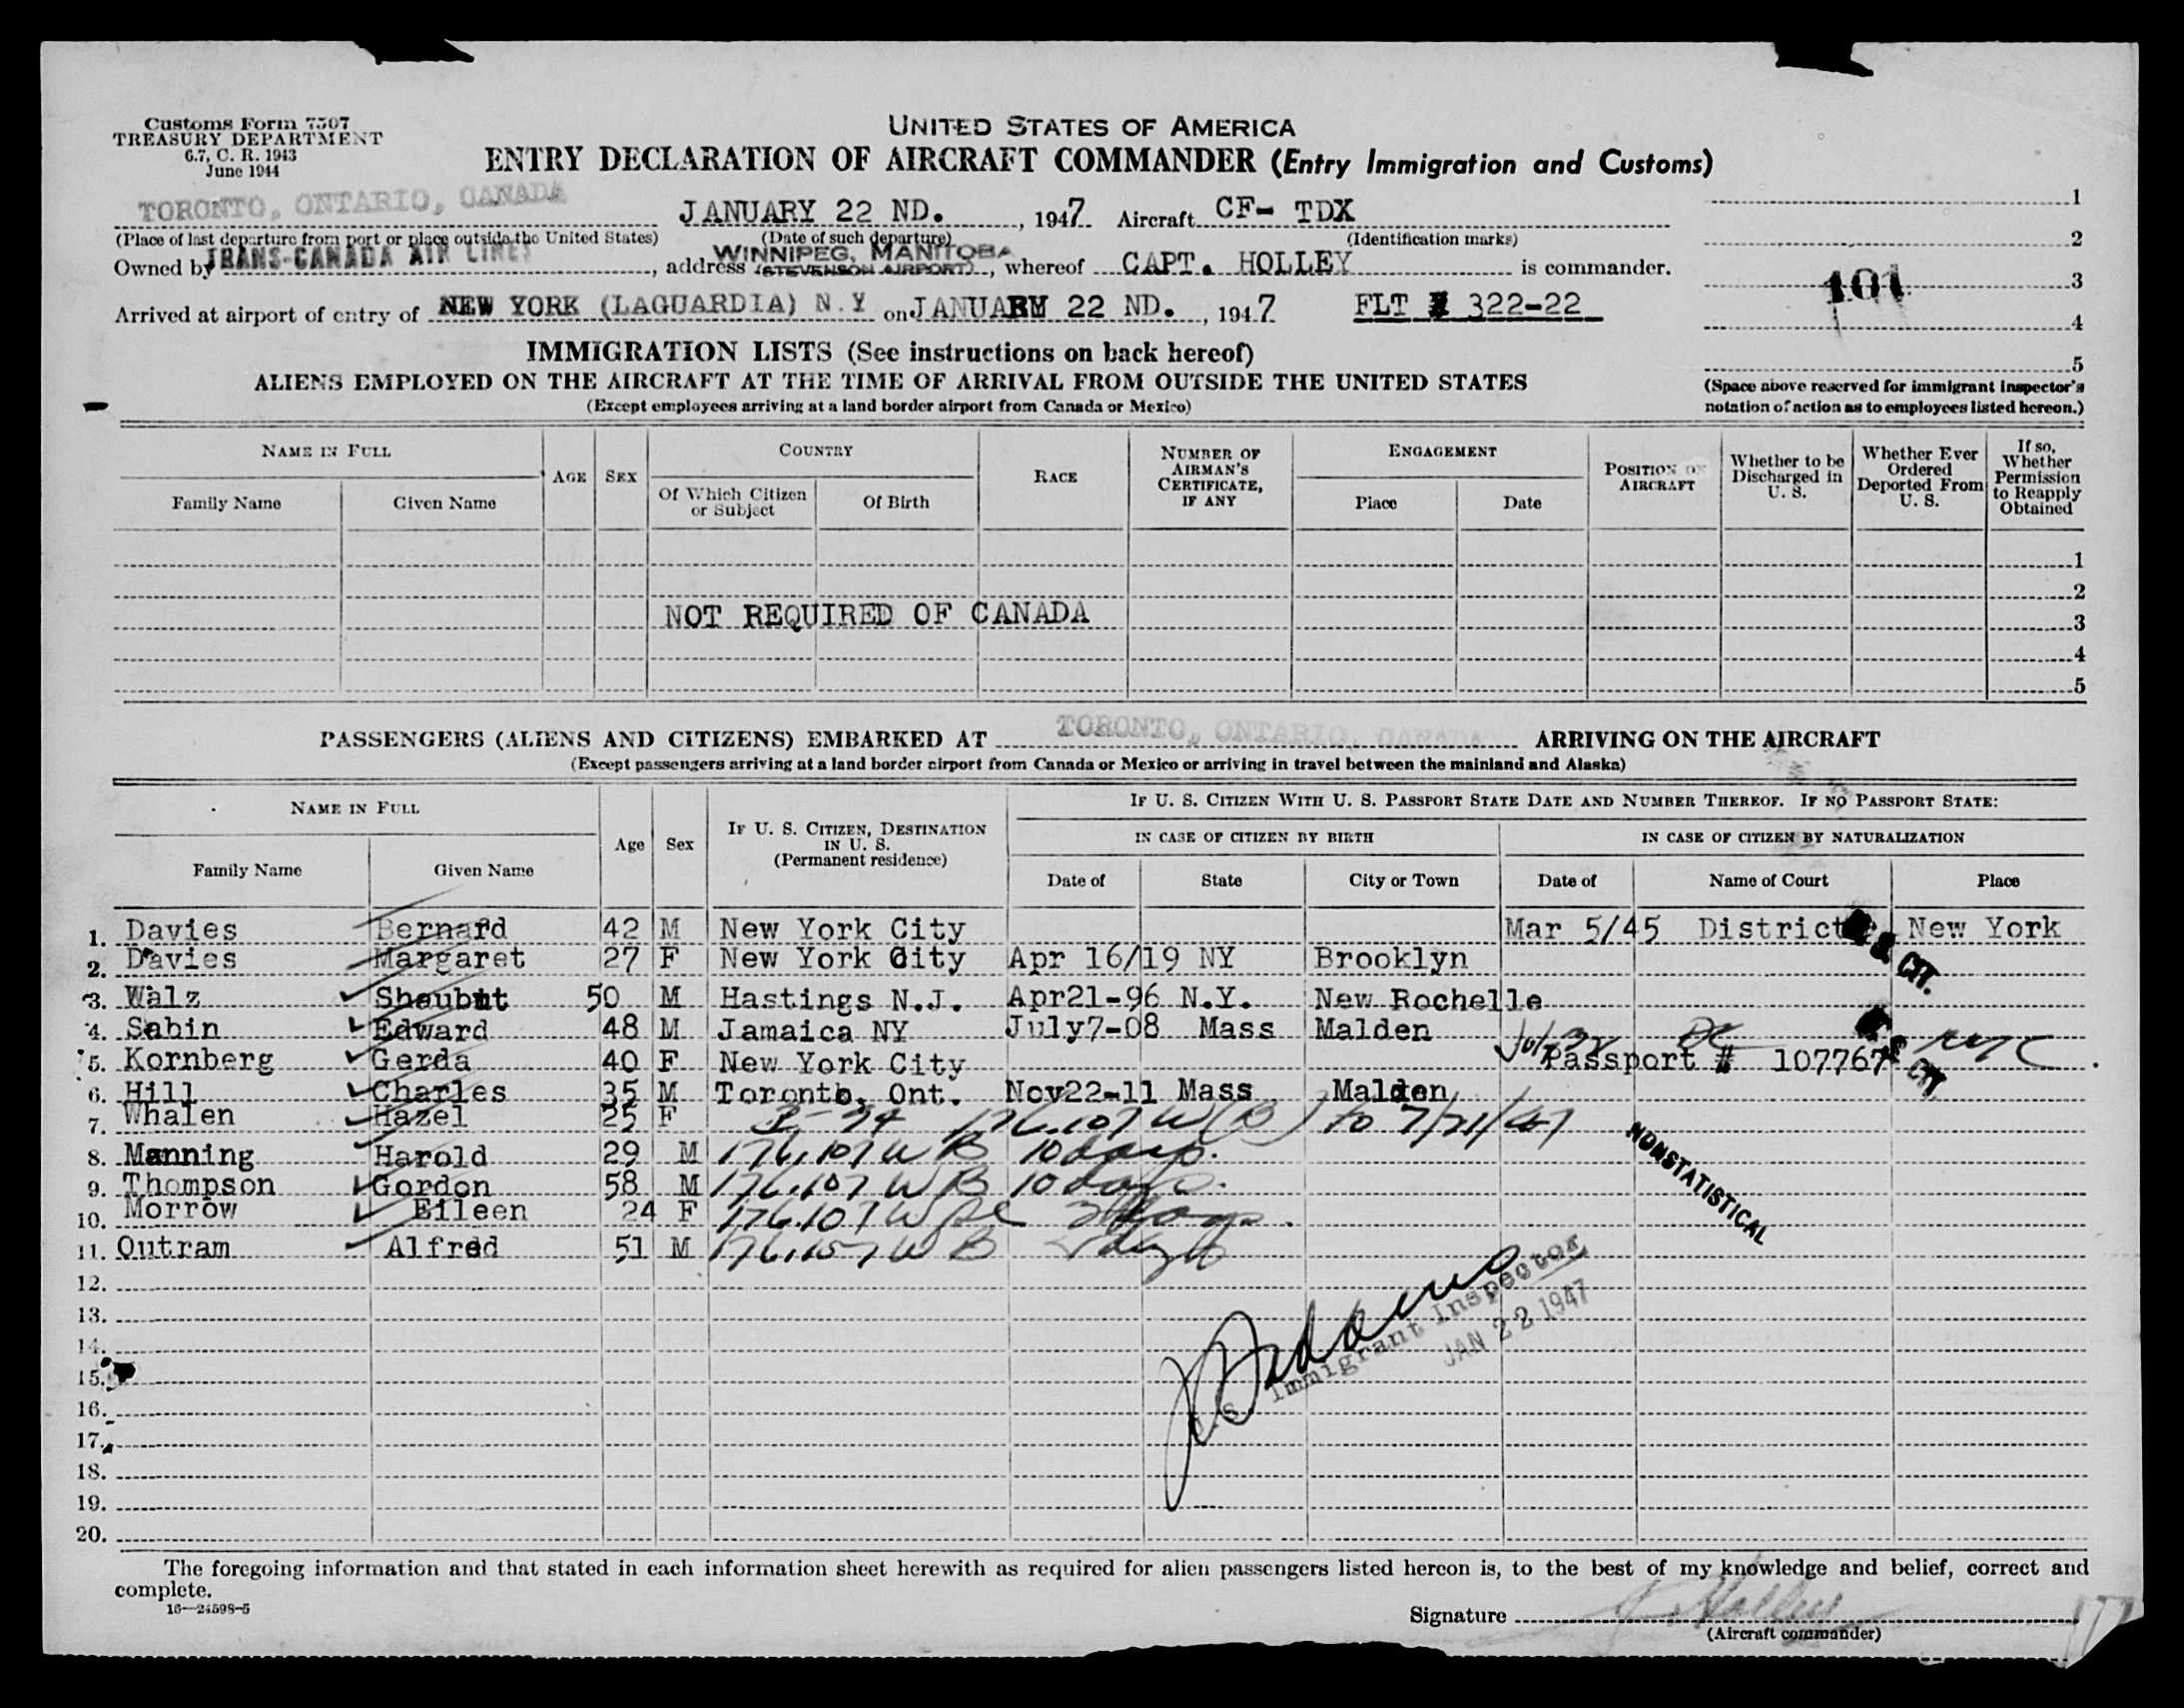 Customs Form 7507
TREASURY DEPARTMENT
6.7, C. R. 1943
June 1944
UNITED STATES OF AMERICA
ENTRY DECLARATION OF AIRCRAFT COMMANDER (Entry Immigration and Customs)
TORONTO, ONTARIO, CANADA JANUARY 22 ND., 1947 Aircraft CF- TDX 1
(Place of last departure from port or place outside the United States) (Date of such departure) (Identification marks) 2
Owned by TRANS-CANADA AIR LINES, address WINNIPEG, MANITOBA (STEVENSON AIRPORT), whereof CAPT. HOLLEY is commander.
101 3
Arrived at airport of entry of NEW YORK (LAGUARDIA) N.Y on JANUARY 22 ND., 1947 FLT # 322-22
4
IMMIGRATION LISTS (See instructions on back hereof) 5
ALIENS EMPLOYED ON THE AIRCRAFT AT THE TIME OF ARRIVAL FROM OUTSIDE THE UNITED STATES
(Except employees arriving at a land border airport from Canada or Mexico)
(Space above reserved for immigrant inspector's
notation of action as to employees listed hereon.)
NAME IN FULL AGE SEX COUNTRY RACE NUMBER OF AIRMAN'S CERTIFICATE, IF ANY ENGAGEMENT POSITION ON AIRCRAFT Whether to be Discharged in U. S. Whether Ever Ordered Deported From U. S. If so, Whether Permission to Reapply Obtained
Family Name Given Name Of Which Citizen or Subject Of Birth Place Date
1
2
NOT REQUIRED OF CANADA 3
4
5
PASSENGERS (ALIENS AND CITIZENS) EMBARKED AT TORONTO, ONTARIO, CANADA ARRIVING ON THE AIRCRAFT
(Except passengers arriving at a land border airport from Canada or Mexico or arriving in travel between the mainland and Alaska)
NAME IN FULL Age Sex IF U. S. CITIZEN, DESTINATION IN U. S. (Permanent residence) IF U. S. CITIZEN WITH U. S. PASSPORT STATE DATE AND NUMBER THEREOF. IF NO PASSPORT STATE:
IN CASE OF CITIZEN BY BIRTH IN CASE OF CITIZEN BY NATURALIZATION
Family Name Given Name Date of State City or Town Date of Name of Court Place
1. Davies Bernard 42 M New York City Mar 5/45 District New York
2. Davies Margaret 27 F New York City Apr 16/19 NY Brooklyn CIT.
3. Walz 50 M Hastings N.J. Apr21-96 N.Y. New Rochelle
4. Sabin Edward 48 M Jamaica NY July7-08 Mass Malden
5. Kornberg Gerda 40 F New York City Passport # 107767 NYC
6. Hill Charles 35 M Toronto, Ont. Nov22-11 Mass Malden CIT
7. Whalen Hazel 25 F 176.107 W (B) to 7/21/47
8. Manning Harold 29 M 176.107 W B 10 days.
9. Thompson Gordon 58 M 176.107 W B 10 days.
10. Morrow Eileen 24 F 176.107 W
11. Outram Alfred 51 M 176.107 W B
NONSTATISTICAL
12.
13.
U.S. Immigrant Inspector
JAN 22 1947
14.
15.
16.
17.
18.
19.
20.
The foregoing information and that stated in each information sheet herewith as required for alien passengers listed hereon is, to the best of my knowledge and belief, correct and
complete.
16—24598-5
Signature Holley
(Aircraft commander)